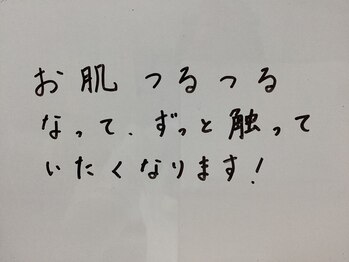 お肌つるつる
なって、ずっと触って
いたくなります!